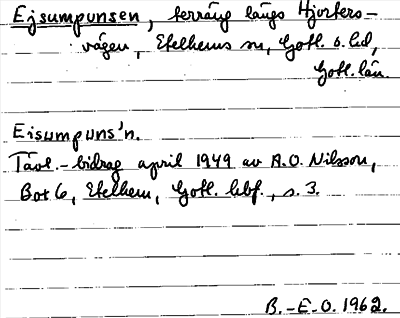 Ejsumpunsen, terräng längs Hjorters-
vägen, Etelhems sn, Gotl. s. hd,
Gotl. län.
Eisumpuns'n.
Tävl.-bidrag april 1949 av A.O. Nilsson,
Box 6, Etelhem, Gotl. hbf., s. 3.
B.-E.O. 1962.